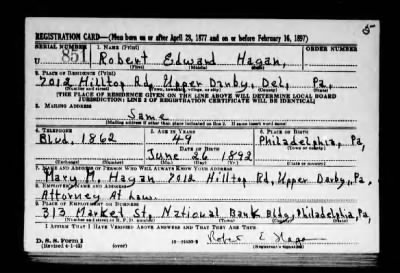 REGISTRATION CARD—(Men born on or after April 28, 1877 and on or before February 16, 1897)
SERIAL NUMBER
1. NAME (Print)
ORDER NUMBER
U 851
Robert Edward Hagan,
(First) (Middle) (Last)
2. PLACE OF RESIDENCE (Print)
7012 Hilltop Rd, Upper Darby, Del, Pa.
(Number and street) (Town, township, village, or city) (County) (State)
[THE PLACE OF RESIDENCE GIVEN ON THE LINE ABOVE WILL DETERMINE LOCAL BOARD
JURISDICTION; LINE 2 OF REGISTRATION CERTIFICATE WILL BE IDENTICAL]
3. MAILING ADDRESS
Same
[Mailing address if other than place indicated on line 2. If same insert word same]
4. TELEPHONE
5. AGE IN YEARS
6. PLACE OF BIRTH
Blvd, 1862
49
Philadelphia,
DATE OF BIRTH
(Town or county)
June 26 1892
Pa,
(Exchange) (Number)
(Mo.) (Day) (Yr.)
(State or country)
7. NAME AND ADDRESS OF PERSON WHO WILL ALWAYS KNOW YOUR ADDRESS
Mary M. Hagan 7012 Hilltop Rd, Upper Darby, Pa,
8. EMPLOYER'S NAME AND ADDRESS
Attorney At Law.
9. PLACE OF EMPLOYMENT OR BUSINESS
313 Market St, National Bank Bldg, Philadelphia, Pa,
(Number and street or R. F. D. number) (Town) (County) (State)
I AFFIRM THAT I HAVE VERIFIED ABOVE ANSWERS AND THAT THEY ARE TRUE.
D. S. S. Form 1
(Revised 4-1-42) (over)
Robert E Hagan
(Registrant's signature)